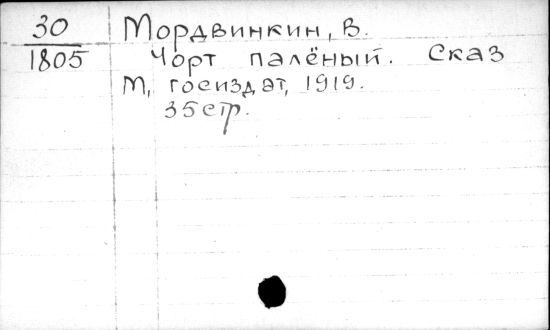 30
1805
Мордвинкин, В.
Чорт палёный. Сказ
М, госиздат, 1919.
35 стр.